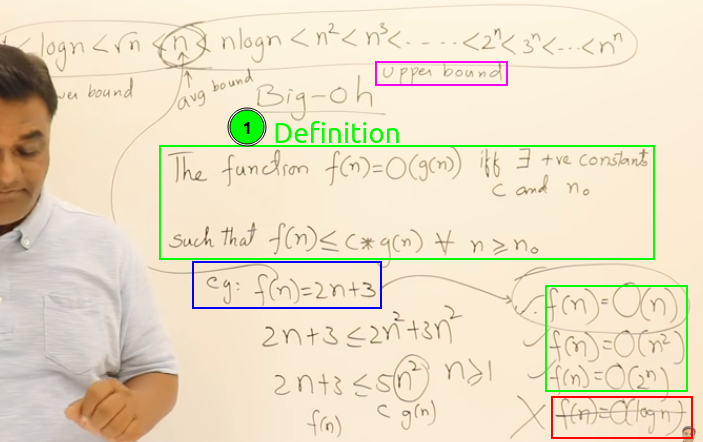 < logn < √n < n < nlogn < n² < n³ < ..... < 2ⁿ < 3ⁿ < ... < nⁿ
bound
avg bound
Upper bound
Big-oh
1 Definition
The function f(n)=O(g(n)) iff ∃ +ve constants
c and n₀
such that f(n) ≤ c*g(n) ∀ n ≥ n₀
eg: f(n)=2n+3
2n+3 ≤ 2n²+3n²
2n+3 ≤ 5n² n≥1
f(n) c g(n)
✓ f(n)=O(n)
✓ f(n)=O(n²)
✓ f(n)=O(2ⁿ)
X f(n)=O(logn)